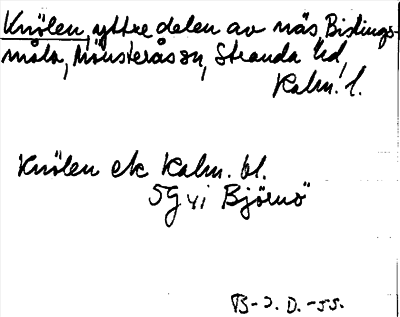 Knölen, yttre delen av näs, Bislings-
måla, Mönsterås sn, Stranda hd,
Kalm. l.
Knölen ek Kalm. bl.
5G vi Björnö
B-J. D. -55.